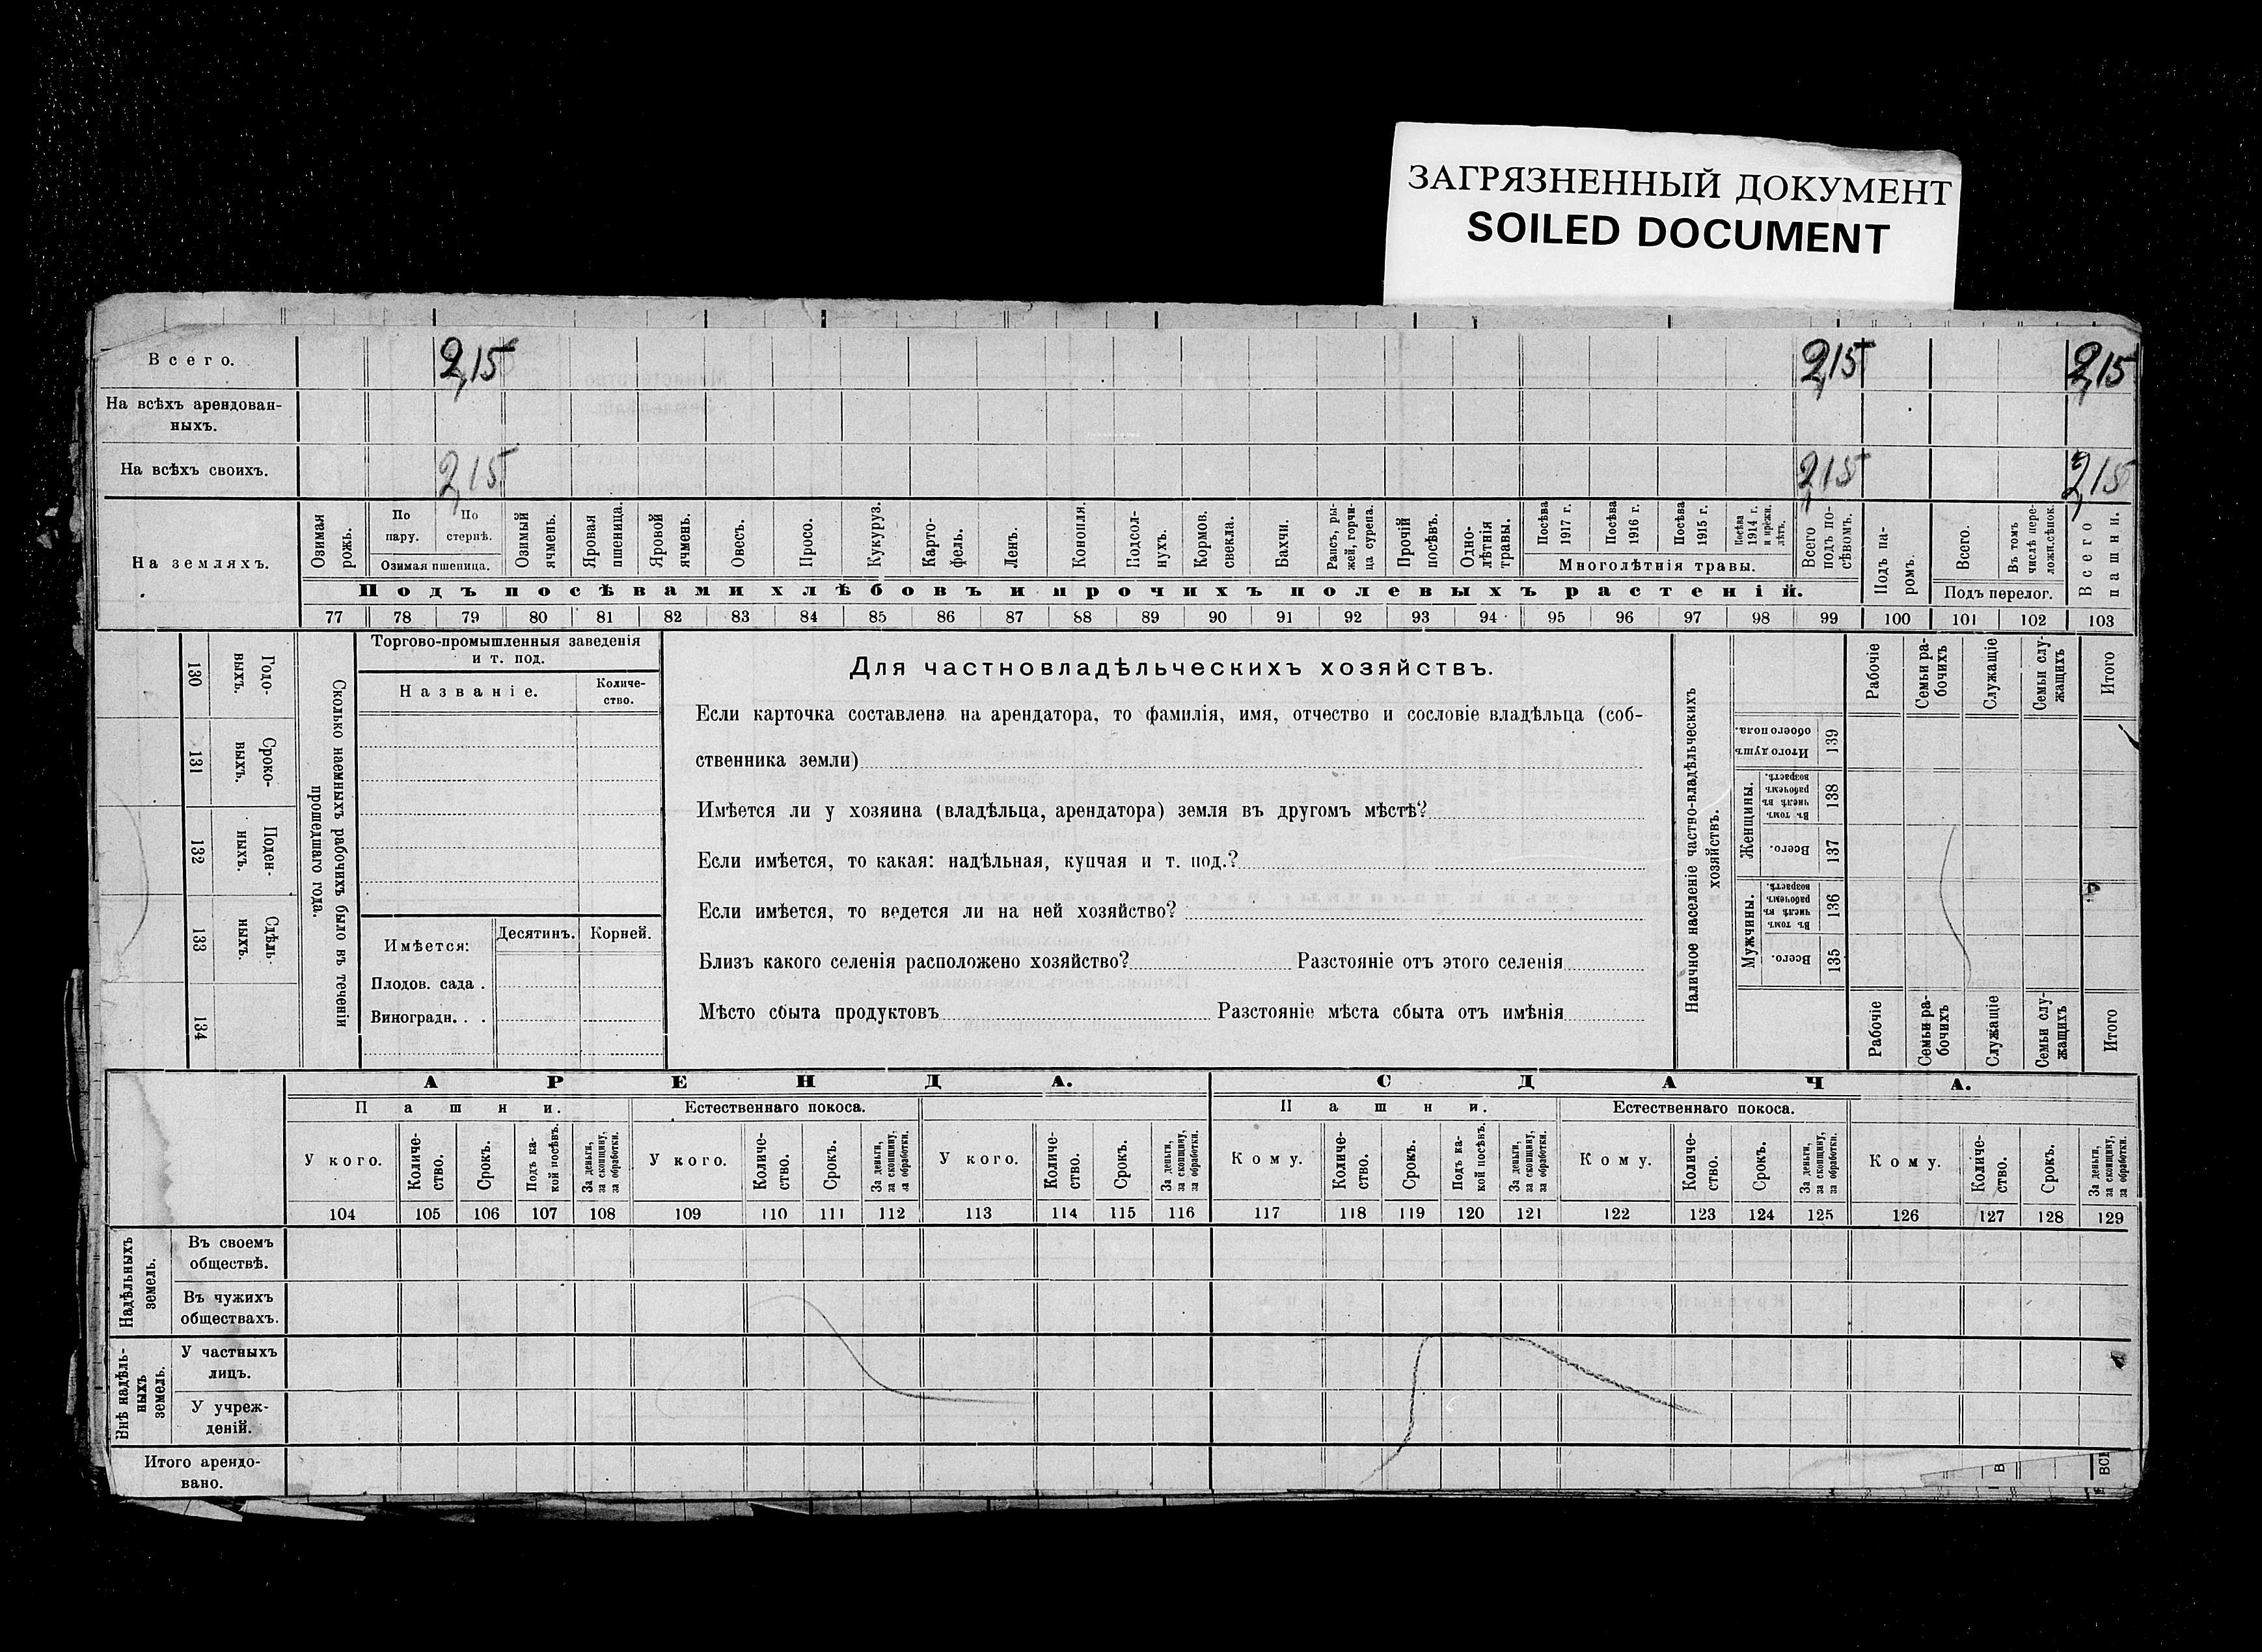 ЗАГРЯЗНЕННЫЙ ДОКУМЕНТ
SOILED DOCUMENT
Всего. 2,15 2,15 2,15
На всѣхъ арендован-
ныхъ.
На всѣхъ своихъ. 2,15 2,15 2,15
На земляхъ.
Озимая рожь.
По пару.
По стернѣ.
Озимая пшеница.
Озимый ячмень.
Яровая пшеница.
Яровой ячмень.
Овесъ.
Просо.
Кукуруз.
Карто-
фель.
Ленъ.
Конопля.
Подсол-
нухъ.
Кормов. свекла.
Бахчи.
Рапсъ, ры-
жей, горчи-
ца сурепа.
Прочій посѣвъ.
Одно-
лѣтнія травы.
Посѣва 1917 г.
Посѣва 1916 г.
Посѣва 1915 г.
Посѣва 1914 г. и прежн. лѣтъ.
Многолѣтнія травы.
Всего подъ по-
сѣвомъ.
Подъ па-
ромъ.
Всего.
Въ томъ числѣ пере-
ложн.сѣнок.
Подъ перелог.
Всего пашни.
Подъ посѣвами хлѣбовъ и прочихъ полевыхъ растеній.
77 78 79 80 81 82 83 84 85 86 87 88 89 90 91 92 93 94 95 96 97 98 99 100 101 102 103
130 Годо-
выхъ.
131 Сроко-
выхъ.
132 Поден-
ныхъ.
133 Сдѣль-
ныхъ.
134
Сколько наемныхъ рабочихъ было въ теченіи
прошедшаго года.
Торгово-промышленныя заведенія
и т. под.
Названіе.
Количе-
ство.
Имѣется:
Десятинъ. Корней.
Плодов. сада .
Виноградн. . .
Для частновладѣльческихъ хозяйствъ.
Если карточка составлена на арендатора, то фамилія, имя, отчество и сословіе владѣльца (соб-
ственника земли)
Имѣется ли у хозяина (владѣльца, арендатора) земля въ другомъ мѣстѣ?
Если имѣется, то какая: надѣльная, купчая и т. под.?
Если имѣется, то ведется ли на ней хозяйство?
Близъ какого селенія расположено хозяйство? Разстояніе отъ этого селенія
Мѣсто сбыта продуктовъ Разстояніе мѣста сбыта отъ имѣнія
Наличное населеніе частно-владѣльческихъ
хозяйствъ.
Рабочіе
Семьи ра-
бочихъ
Служащіе
Семьи слу-
жащихъ
Итого
Итого душъ обоего пола. 139
Женщины.
Въ томъ числѣ въ рабочемъ возрастѣ. 138
Всего. 137
Мужчины.
Въ томъ числѣ въ рабочемъ возрастѣ. 136
Всего. 135
Рабочіе
Семьи ра-
бочихъ
Служащіе
Семьи слу-
жащихъ
Итого
АРЕНДА. СДАЧА.
Пашни. Естественнаго покоса. Пашни. Естественнаго покоса.
У кого.
Количе-
ство.
Срокъ.
Подъ ка-
кой посѣвъ.
За деньги, за скопщину, за обработки.
У кого.
Количе-
ство.
Срокъ.
За деньги, за скопщину, за обработки.
У кого.
Количе-
ство.
Срокъ.
За деньги, за скопщину, за обработки.
Кому.
Количе-
ство.
Срокъ.
Подъ ка-
кой посѣвъ.
За деньги, за скопщину, за обработки.
Кому.
Количе-
ство.
Срокъ.
За деньги, за скопщину, за обработки.
Кому.
Количе-
ство.
Срокъ.
За деньги, за скопщину, за обработки.
104 105 106 107 108 109 110 111 112 113 114 115 116 117 118 119 120 121 122 123 124 125 126 127 128 129
Надѣльныхъ
земель.
Въ своемъ
обществѣ.
Въ чужихъ
обществахъ.
Внѣ надѣль-
ныхъ
земель.
У частныхъ
лицъ.
У учреж-
деній.
Итого арендо-
вано.